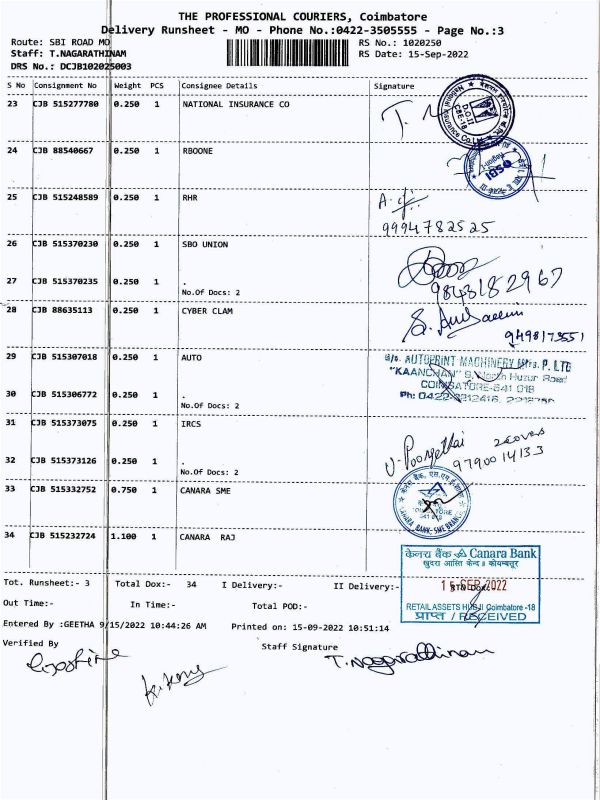 THE PROFESSIONAL COURIERS, Coimbatore
Delivery Runsheet - MO - Phone No.:0422-3505555 - Page No.:3
Route: SBI ROAD MO RS No.: 1020250
Staff: T.NAGARATHINAM RS Date: 15-Sep-2022
DRS No.: DCJB102025003
S No Consignment No Weight PCS Consignee Details Signature
23 CJB 515277780 0.250 1 NATIONAL INSURANCE CO
D.O.II
CBE-18
24 CJB 88540667 0.250 1 RBOONE
SBI
25 CJB 515248589 0.250 1 RHR
9994782525
26 CJB 515370230 0.250 1 SBO UNION
27 CJB 515370235 0.250 1 .
9843182967
No.Of Docs: 2
28 CJB 88635113 0.250 1 CYBER CLAM
29 CJB 515307018 0.250 1 AUTO
AUTOPRINT MACHINERY Mfrs. P. LTD
"KAANCHAN" 9, North Huzur Road
COIMBATORE-641 018
30 CJB 515306772 0.250 1 .
Ph: 0422-2212416,
No.Of Docs: 2
31 CJB 515373075 0.250 1 IRCS
2 covers
9790014133
32 CJB 515373126 0.250 1 .
No.Of Docs: 2
33 CJB 515332752 0.750 1 CANARA SME
CANARA BANK, SME BRANCH
34 CJB 515232724 1.100 1 CANARA RAJ
केनरा बैंक Canara Bank
Tot. Runsheet:- 3 Total Dox:- 34 I Delivery:- II Delivery:- RTO Dox:-
15 SEP 2022
Out Time:- In Time:- Total POD:-
RETAIL ASSETS HUB Coimbatore -18
प्राप्त / RECEIVED
Entered By :GEETHA 9/15/2022 10:44:26 AM Printed on: 15-09-2022 10:51:14
Verified By Staff Signature
T.Nagarathinam